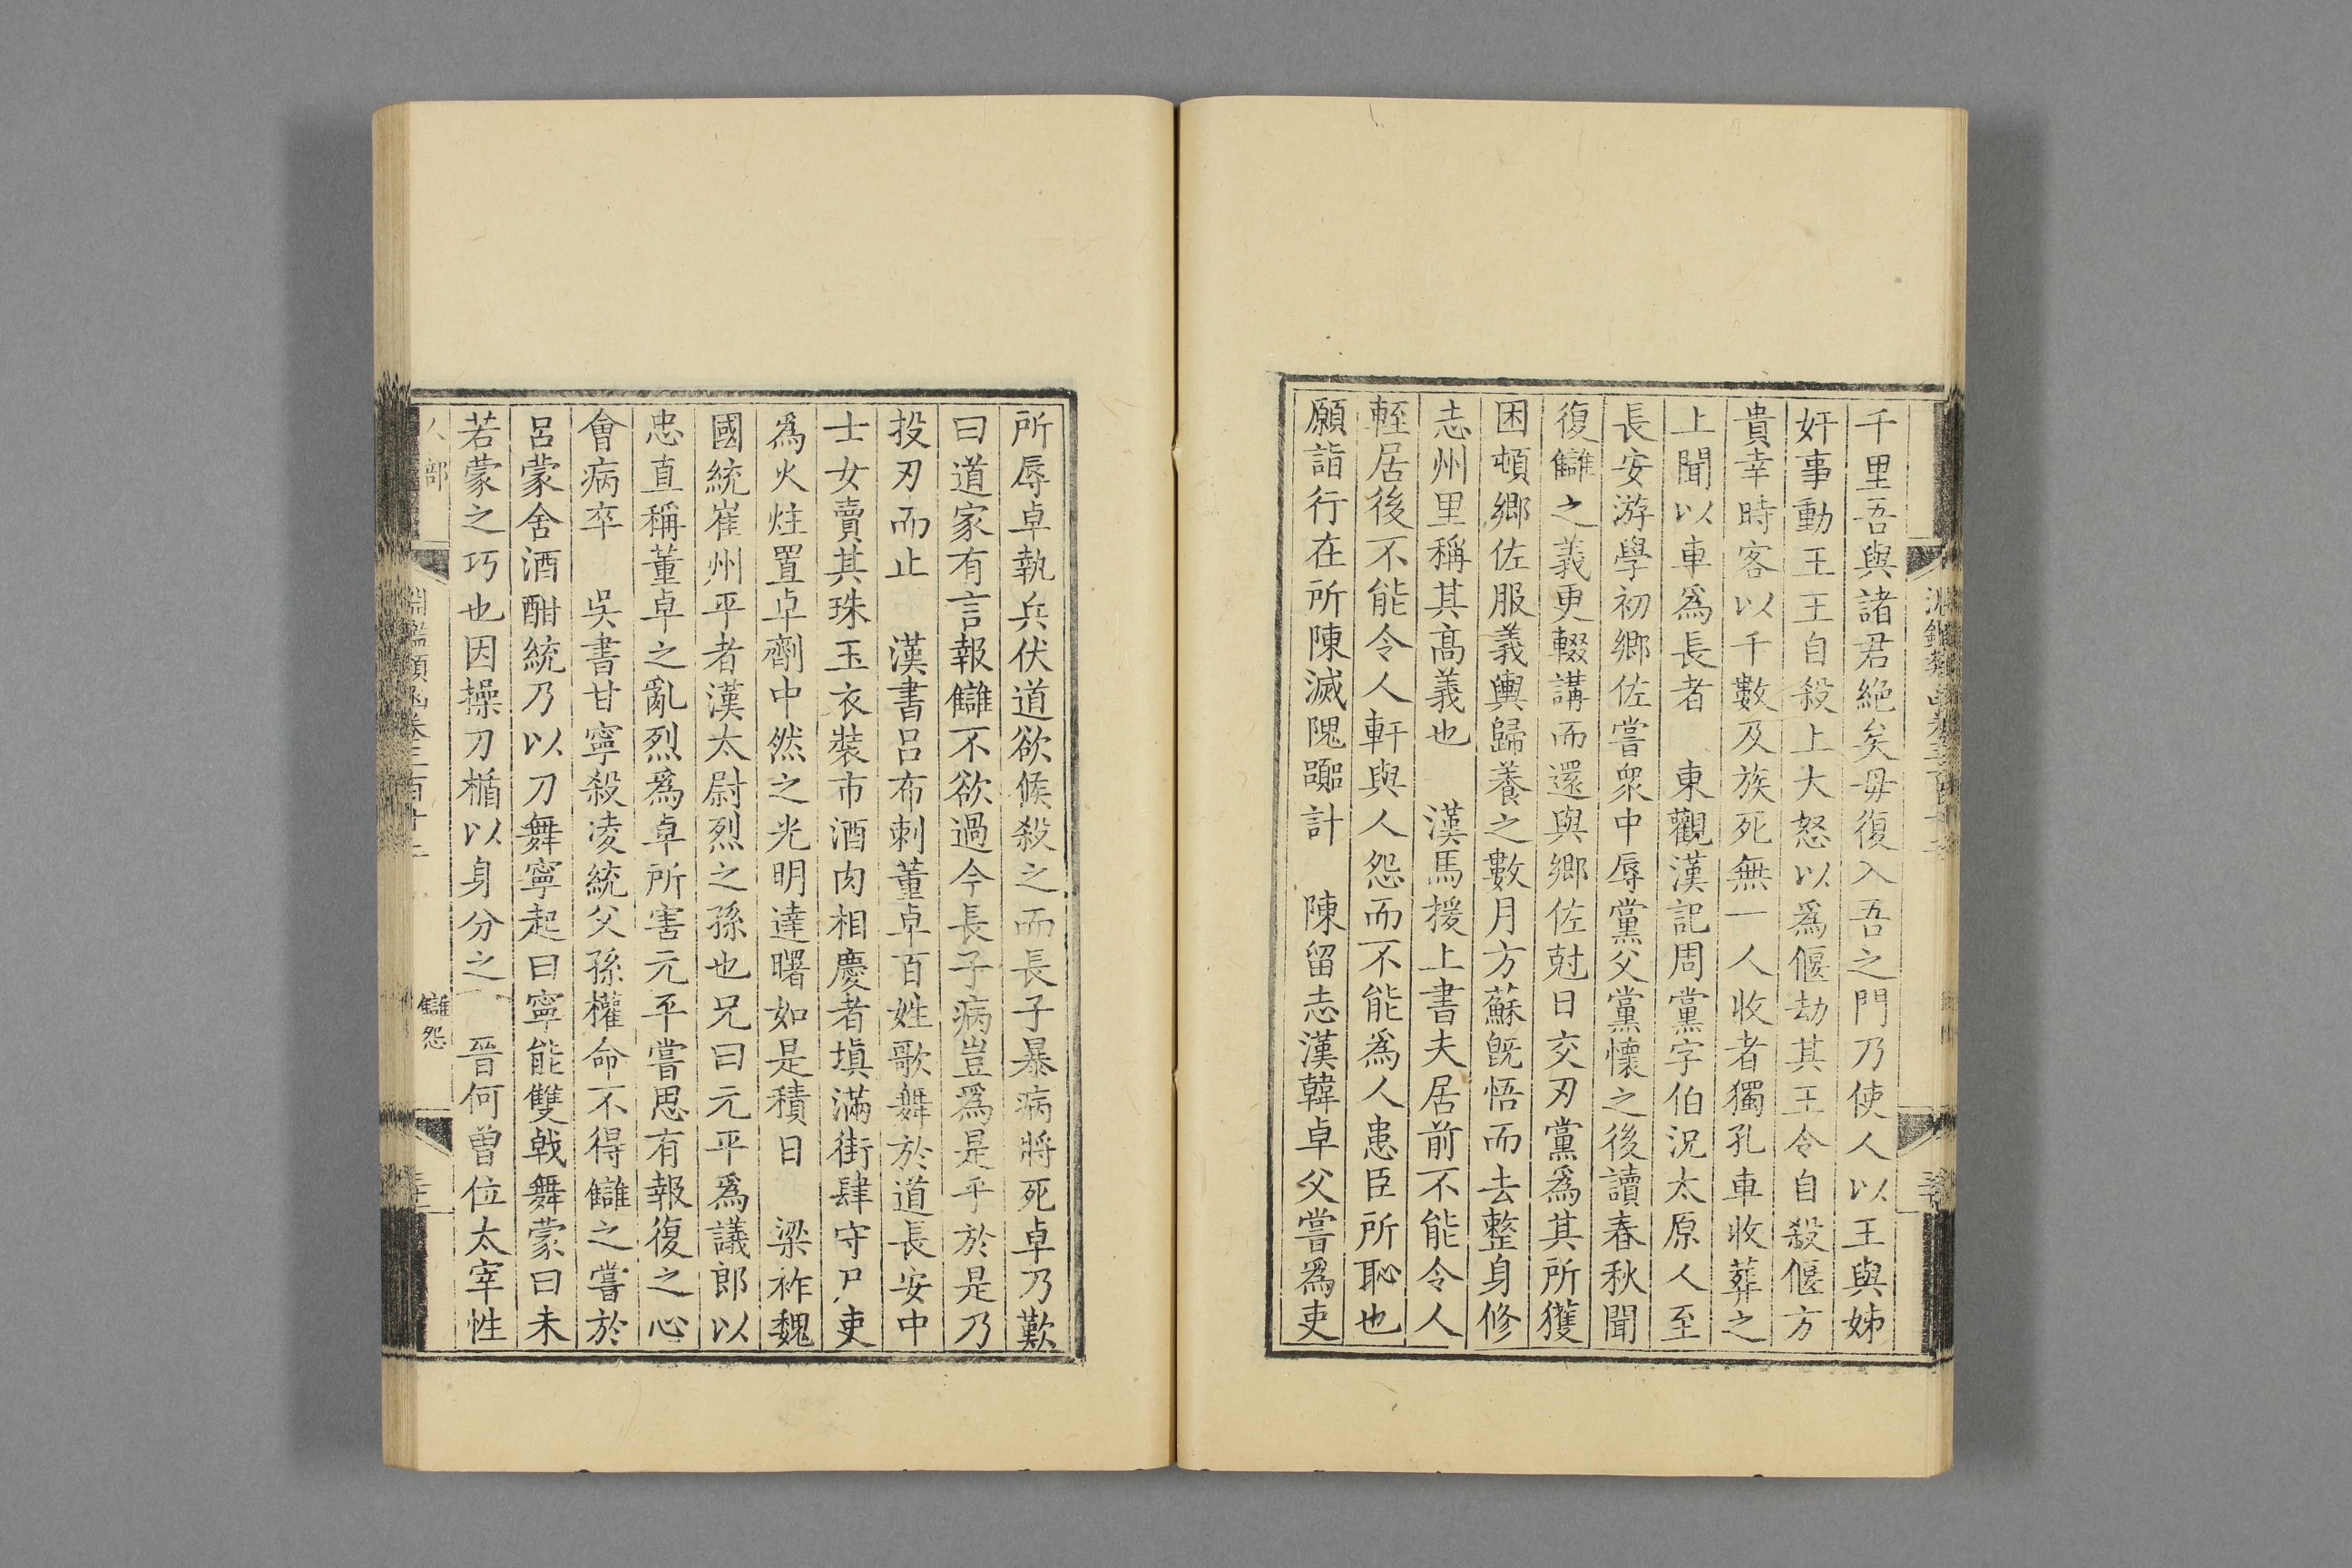 千里吾與諸君絕矣毋復入吾之門乃使人以王與姊
奸事動王王自殺上大怒以爲偃劫其王令自殺偃方
貴幸時客以千數及族死無一人收者獨孔車收葬之
上聞以車爲長者　東觀漢記周黨字伯況太原人至
長安游學初鄉佐嘗眾中辱黨父黨懷之後讀春秋聞
復讎之義更輟講而還與鄉佐尅日交刃黨爲其所獲
困頓鄉佐服義輿歸養之數月方蘇旣悟而去整身修
志州里稱其髙義也　漢馬援上書夫居前不能令人
輊居後不能令人軒與人怨而不能爲人患臣所恥也
願詣行在所陳滅隗囂計　陳留志漢韓卓父嘗爲吏
所辱卓執兵伏道欲候殺之而長子暴病將死卓乃歎
曰道家有言報讎不欲過今長子病豈爲是乎於是乃
投刃而止　漢書呂布刺董卓百姓歌舞於道長安中
士女賣其珠玉衣裝市酒肉相慶者塡滿街肆守尸吏
爲火炷置卓劑中然之光明達曙如是積日　梁祚魏
國統崔州平者漢太尉烈之孫也兄曰元平爲議郎以
忠直稱董卓之亂烈爲卓所害元平嘗思有報復之心
會病卒　吳書甘寧殺凌統父孫權命不得讎之嘗於
呂蒙舍酒酣統乃以刀舞寧起曰寧能雙戟舞蒙曰未
若蒙之巧也因操刀楯以身分之　晉何曾位太宰性
人部
淵鑑類函卷三百十二
讎怨